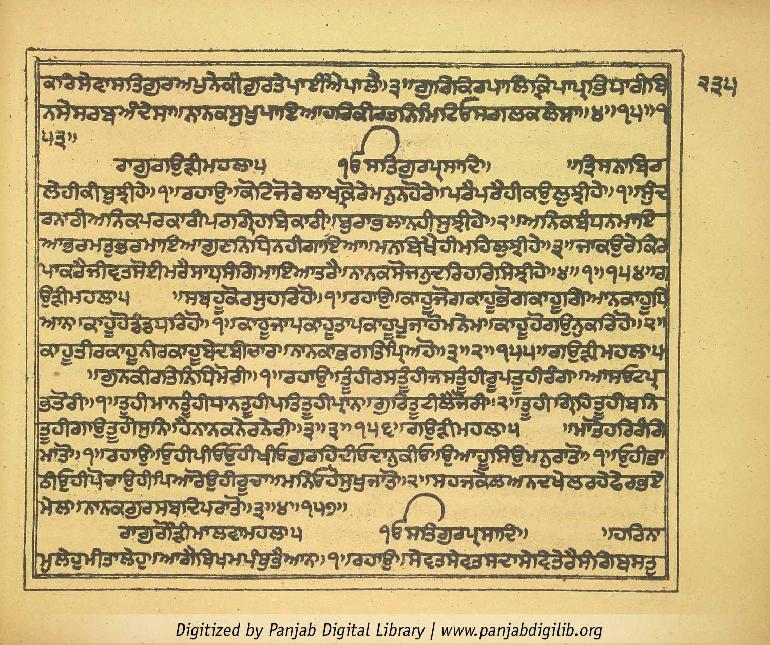 ੨੩੫
ਕਾਰਿਸੇਵਾਸਤਿਗੁਰਅਪੁਨੇਕੀਗੁਰਤੇਪਾਈਐਪਾਲੈ॥੩॥ਗੁਰਿਕਿਰਪਾਲਿਕ੍ਰਿਪਾਪ੍ਰਭਿਧਾਰੀਬਿ
ਨਸੇਸਰਬਅੰਦੇਸਾ॥ਨਾਨਕਸੁਖੁਪਾਇਆਹਰਿਕੀਰਤਨਿਮਿਟਿਓਸਗਲਕਲੇਸਾ॥੪॥੧੫॥੧
੫੩॥
ਰਾਗੁਗਉੜੀਮਹਲਾ੫ ੴਸਤਿਗੁਰਪ੍ਰਸਾਦਿ॥ ॥ਤ੍ਰਿਸਨਾਬਿਰ
ਲੇਹੀਕੀਬੁਝੀਹੇ॥੧॥ਰਹਾਉ॥ਕੋਟਿਜੋਰੇਲਾਖਕ੍ਰੋਰੇਮਨੁਨਹੋਰੇ॥ਪਰੈਪਰੈਹੀਕਉਲੁਝੀਹੇ॥੧॥ਸੁੰਦ
ਰਨਾਰੀਅਨਿਕਪਰਕਾਰੀਪਰਗ੍ਰਿਹਬਿਕਾਰੀ॥ਬੁਰਾਭਲਾਨਹੀਸੁਝੀਹੇ॥੨॥ਅਨਿਕਬੰਧਨਮਾਇ
ਆਭਰਮਤੁਭਰਮਾਇਆਗੁਣਨਿਧਿਨਹੀਗਾਇਆ॥ਮਨਬਿਖੈਹੀਮਹਿਲੁਝੀਹੇ॥੩॥ਜਾਕਉਰੇਕਿਰ
ਪਾਕਰੈਜੀਵਤਸੋਈਮਰੈਸਾਧਸੰਗਿਮਾਇਆਤਰੈ॥ਨਾਨਕਸੋਜਨੁਦਰਿਹਰਿਸਿਝੀਹੇ॥੪॥੧॥੧੫੪॥ਗ
ਉੜੀਮਹਲਾ੫ ॥ਸਬਹੂਕੋਰਸੁਹਰਿਹੋ॥੧॥ਰਹਾਉ॥ਕਾਹੂਜੋਗਕਾਹੂਭੋਗਕਾਹੂਗਿਆਨਕਾਹੂਧਿ
ਆਨ॥ਕਾਹੂਹੋਡੰਡਧਰਿਹੋ॥੧॥ਕਾਹੂਜਾਪਕਾਹੂਤਾਪਕਾਹੂਪੂਜਾਹੋਮਨੇਮ॥ਕਾਹੂਹੋਗਉਨੁਕਰਿਹੋ॥੨॥
ਕਾਹੂਤੀਰਕਾਹੂਨੀਰਕਾਹੂਬੇਦਬੀਚਾਰ॥ਨਾਨਕਾਭਗਤਿਪ੍ਰਿਅਹੋ॥੩॥੨॥੧੫੫॥ਗਉੜੀਮਹਲਾ੫
॥ਗੁਨਕੀਰਤਿਨਿਧਿਮੋਰੀ॥੧॥ਰਹਾਉ॥ਤੂੰਹੀਰਸਤੂੰਹੀਜਸਤੂੰਹੀਰੂਪਤੂਹੀਰੰਗ॥ਆਸਓਟਪ੍ਰ
ਭਤੋਰੀ॥੧॥ਤੂਹੀਮਾਨਤੂੰਹੀਧਾਨਤੂਹੀਪਤਿਤੂਹੀਪ੍ਰਾਨ॥ਗੁਰਿਤੂਟੀਲੈਜੋਰੀ॥੨॥ਤੂਹੀਗ੍ਰਿਹਿਤੂਹੀਬਨਿ
ਤੂਹੀਗਾਉਤੂਹੀਸੁਨਿ॥ਹੈਨਾਨਕਨੇਰਨੇਰੀ॥੩॥੩॥੧੫੬॥ਗਉੜੀਮਹਲਾ੫ ॥ਮਾਤੋਹਰਿਰੰਗਿ
ਮਾਤੋ॥੧॥ਰਹਾਉ॥ਓਹੀਪੀਓਓਹੀਖੀਓਗੁਰਹਿਦੀਓਦਾਨੁਕੀਓ॥ਉਆਹੂਸਿਉਮਨੁਰਾਤੋ॥੧॥ਓਹੀਭਾ
ਠੀਓਹੀਪੋਚਾਉਹੀਪਿਆਰੋਉਹੀਰੂਚਾ॥ਮਨਿਓਹੋਸੁਖੁਜਾਤੋ॥੨॥ਸਹਜਕੇਲਅਨਦਖੇਲਰਹੇਫੇਰਭਏ
ਮੇਲ॥ਨਾਨਕਗੁਰਸਬਦਿਪਰਾਤੋ॥੩॥੪॥੧੫੭॥
ਰਾਗੁਗੌੜੀਮਾਲਵਾਮਹਲਾ੫ ੴਸਤਿਗੁਰਪ੍ਰਸਾਦਿ॥ ॥ਹਰਿਨਾ
ਮੁਲੇਹੁਮੀਤਾਲੇਹੁ॥ਆਗੈਬਿਖਮਪੰਥੁਭੈਆਨ॥੧॥ਰਹਾਉ॥ਸੇਵਤਸੇਵਤਸਦਾਸੇਵਿਤੇਰੈਸੰਗਿਬਸਤੁ
Digitized by Panjab Digital Library | www.panjabdigilib.org